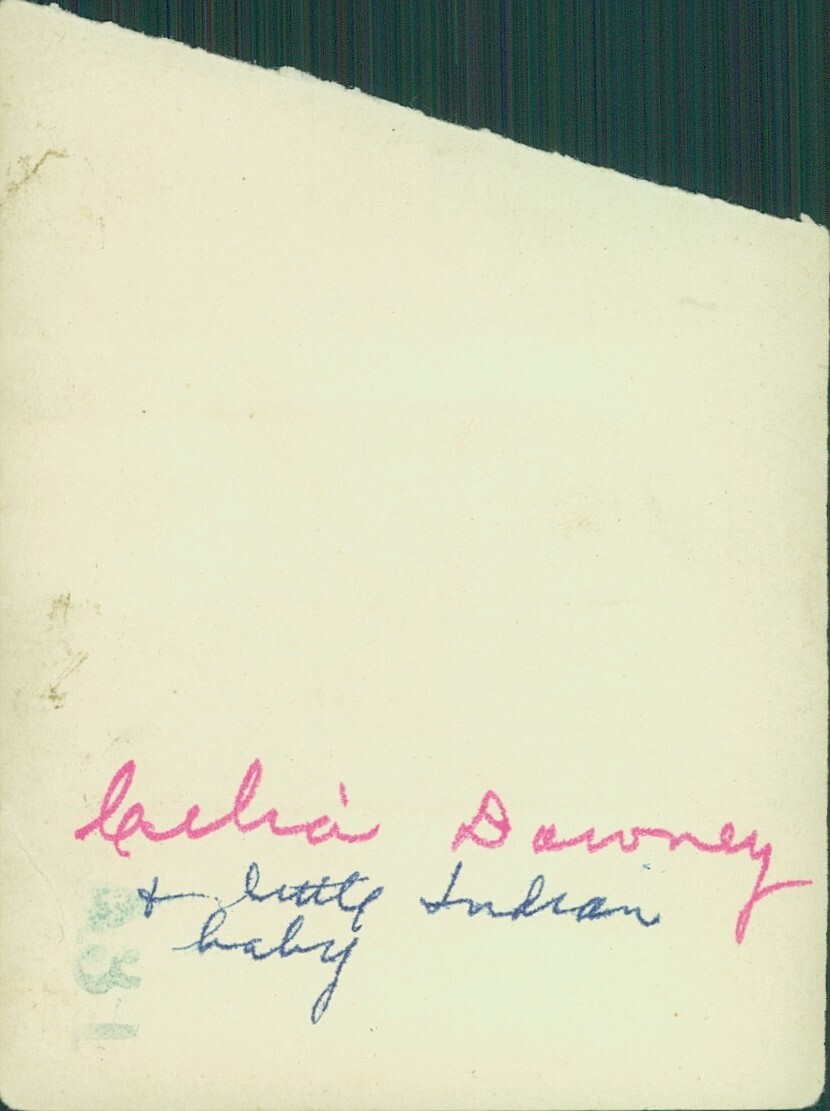 Caelia Downey
+ little Indian
baby